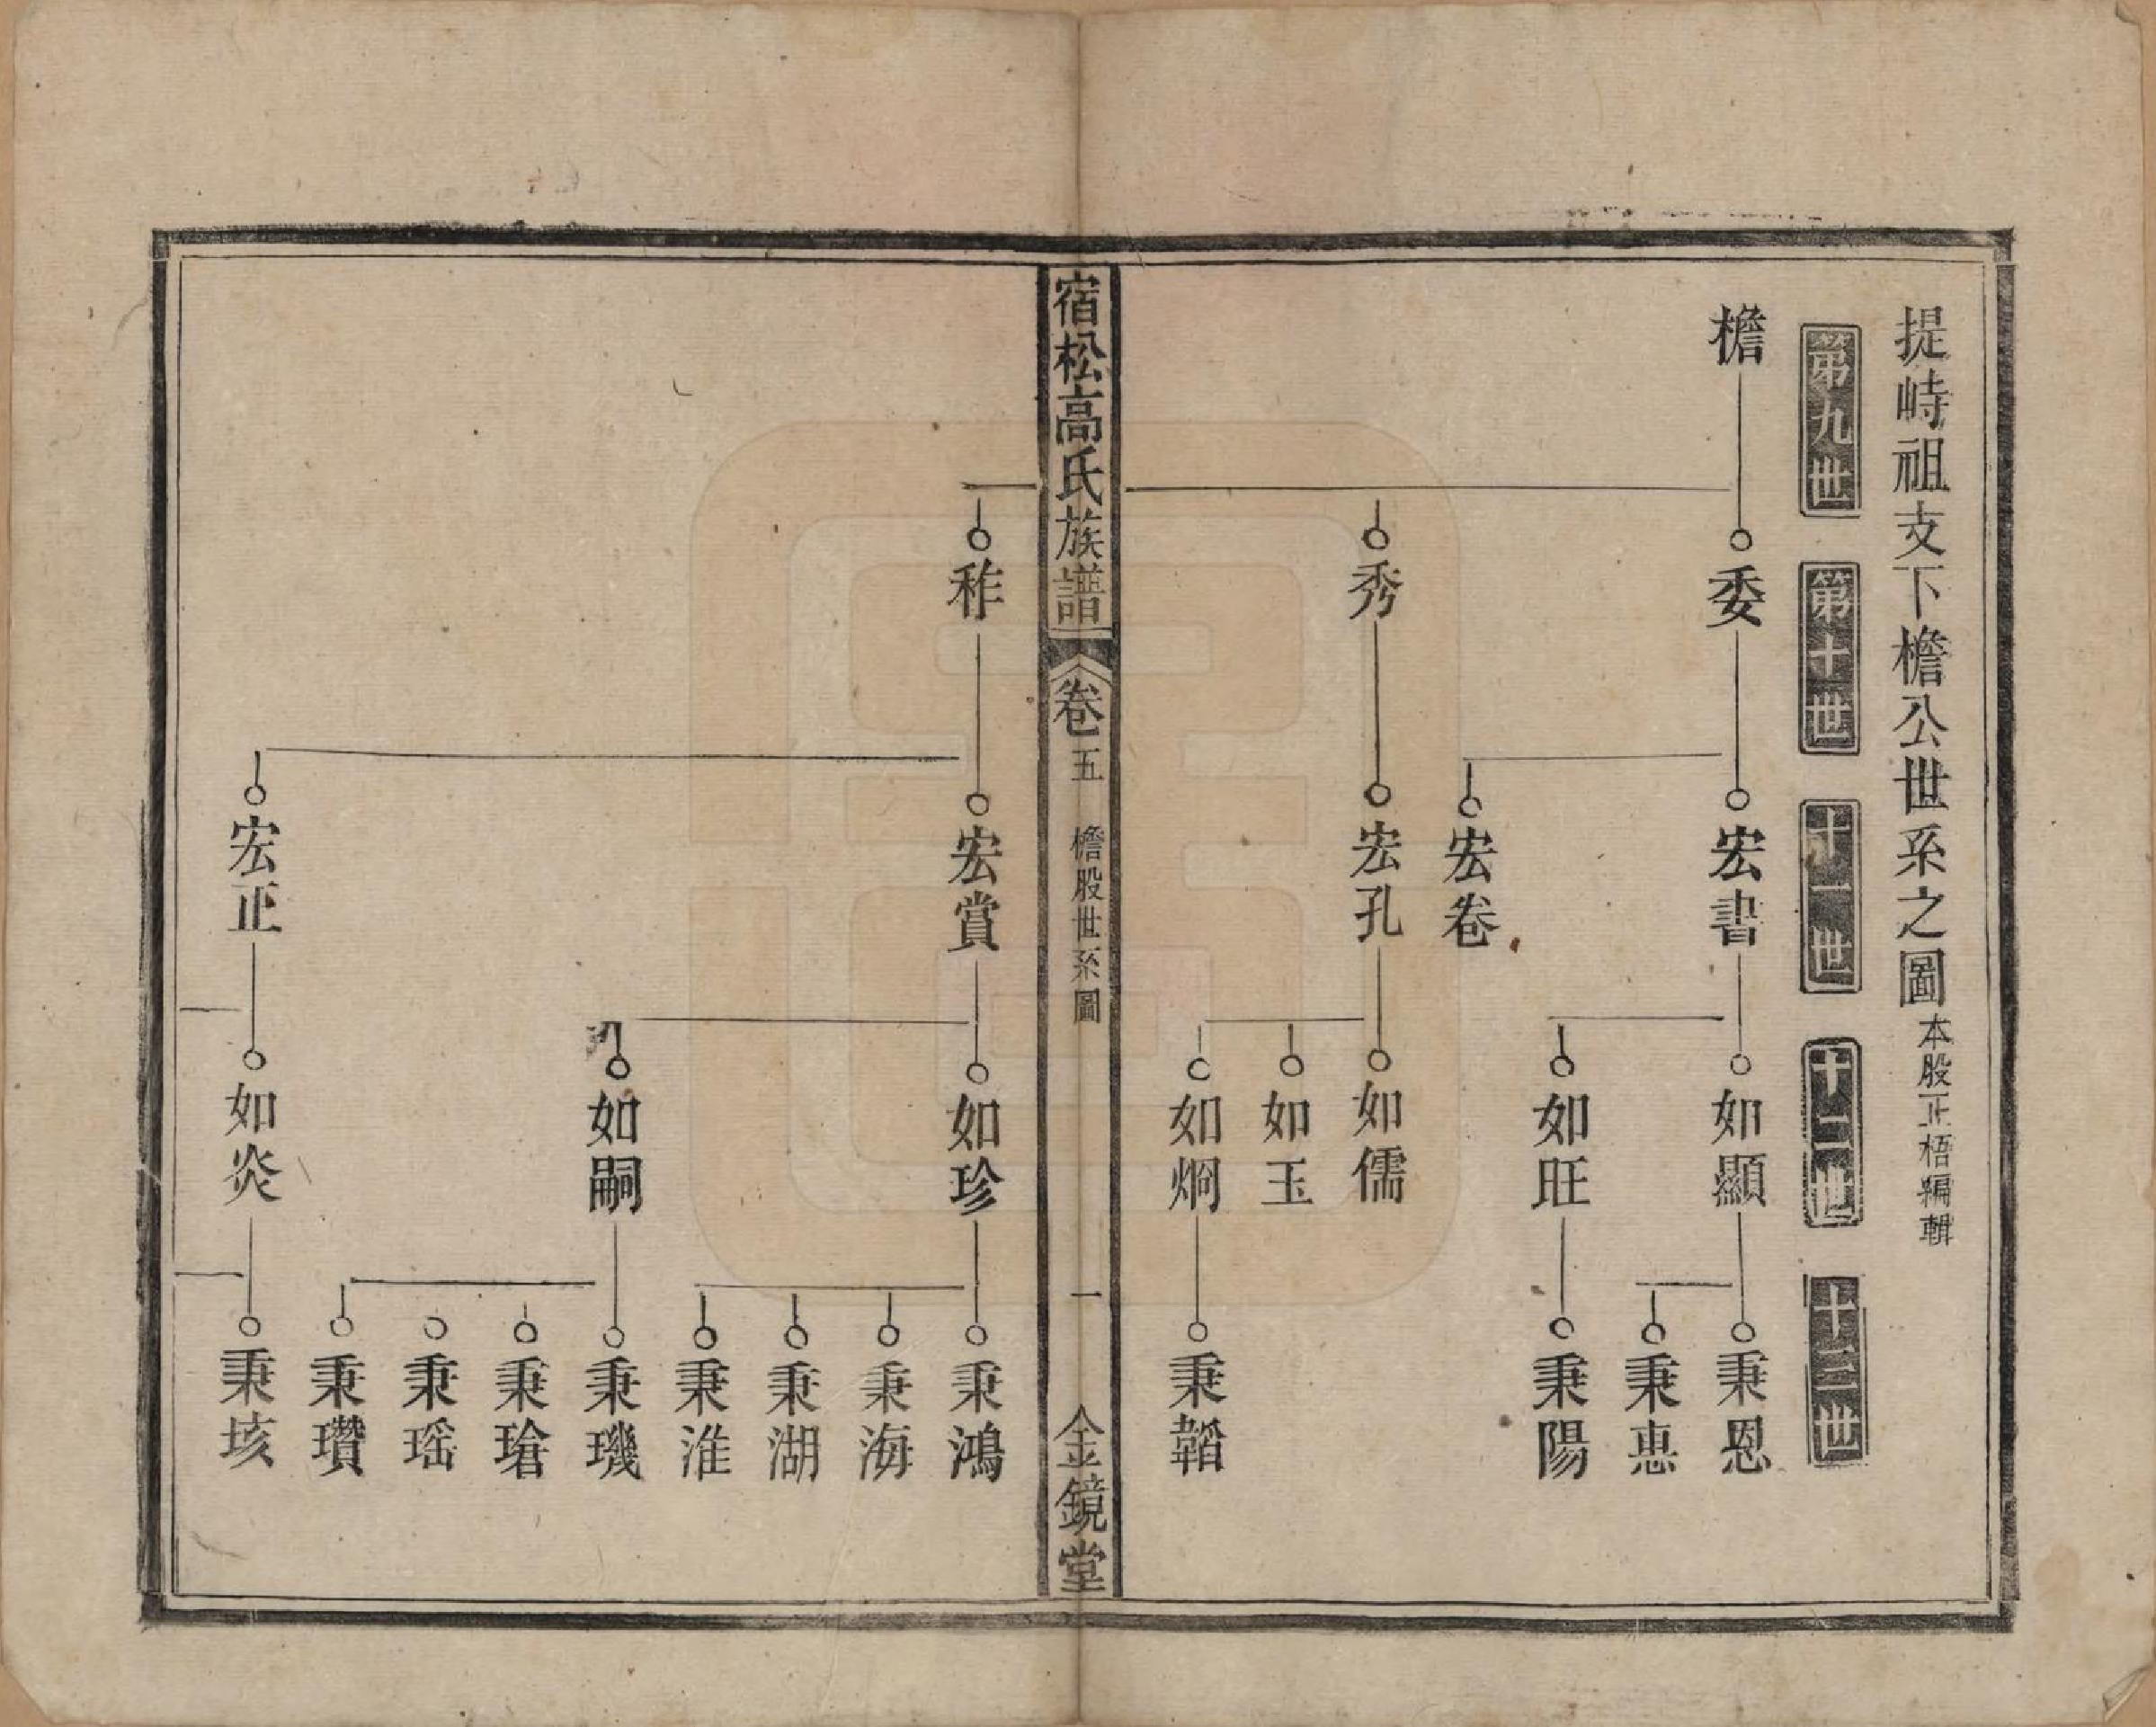 提峙祖支下檐公世系之圖 本股正梧編輯
第九世
第十世
十一世
十二世
十三世
檐
委
宏書
如顯
秉恩
秉惠
如旺
秉陽
宏卷
秀
宏孔
如儒
如玉
如烱
秉韜
宿松高氏族譜
卷五
檐股世系圖
一
金鏡堂
秨
宏賞
如珍
秉鴻
秉海
秉湖
秉淮
如嗣
秉璣
秉瑲
秉瑶
秉瓚
宏正
如炎
秉垓